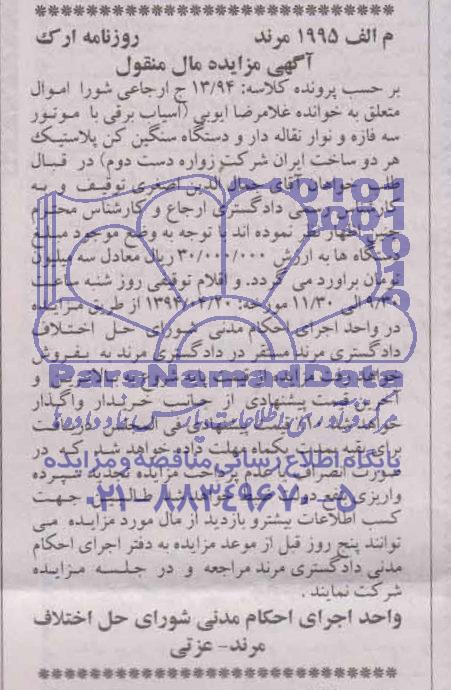 م الف ۱۹۹۵ مرند روزنامه ارک
آگهی مزایده مال منقول
بر حسب پرونده کلاسه: ۱۳/۹۴ ج ارجاعی شورا اموال
متعلق به خوانده غلامرضا ایوبی (آسیاب برقی با موتور
سه فازه و نوار نقاله دار و دستگاه سنگین کن پلاستیک
هر دو ساخت ایران شرکت زواره دست دوم) در قبال
طلب خواهان آقای جمال الدین اصغری توقیف و به
کارشناس رسمی دادگستری ارجاع و کارشناس محترم
چنین اظهار نظر نموده اند با توجه به وضع موجود مبلغ
دستگاه ها به ارزش ۳۰/۰۰۰/۰۰۰ ریال معادل سه میلیون
تومان براورد می گردد. و اقلام توقیفی روز شنبه ساعت
۹/۳۰ الی ۱۱/۳۰ مورخه: ۱۳۹۴/۰۴/۲۰ از طریق مزایده
در واحد اجرای احکام مدنی شورای حل اختلاف
دادگستری مرند مستقر در دادگستری مرند به فروش
خواهد رفت مزایده از قیمت پایه شروع به بالاترین و
آخرین قیمت پیشنهادی از جانب خریدار واگذار
خواهد شد قیمت پیشنهادی فی المجلس دریافت
برای بقیه یکماه مهلت داده خواهد شد که در
صورت انصراف یا عدم پرداخت مزایده تجدید سپرده
واریزی بنفع دولت خواهد شد طالبین جهت
کسب اطلاعات بیشتر و بازدید از مال مورد مزایده می
توانند پنج روز قبل از موعد مزایده به دفتر اجرای احکام
مدنی دادگستری مرند مراجعه و در جلسه مزایده
شرکت نمایند.
واحد اجرای احکام مدنی شورای حل اختلاف
مرند- عزتی
ParsNamadData
پایگاه اطلاع رسانی مناقصه و مزایده
۰۲۱-۸۸۳۴۹۶۷۰-۵